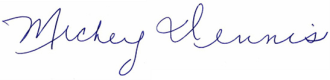 Mickey Dennis